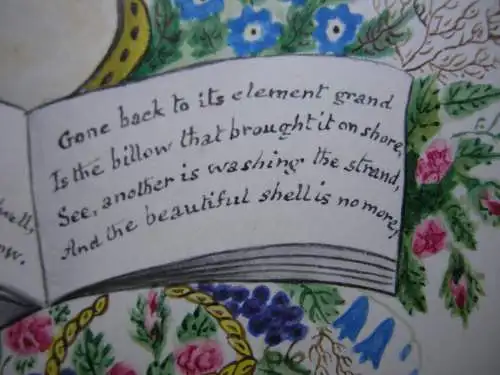 Gone back to its element grand
Is the billow that brought it on shore,
See, another is washing the strand,
And the beautiful shell is no more,